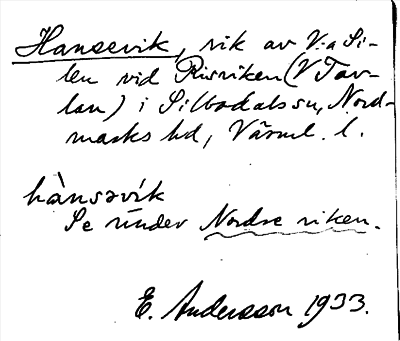 Hansevik, vik av V:a Si-
len vid Risviken (V Tav-
lan) i Silbodals sn, Nord-
marks hd, Värml. l.
hànsəvík
Se under Nordre viken.
E. Andersson 1933.